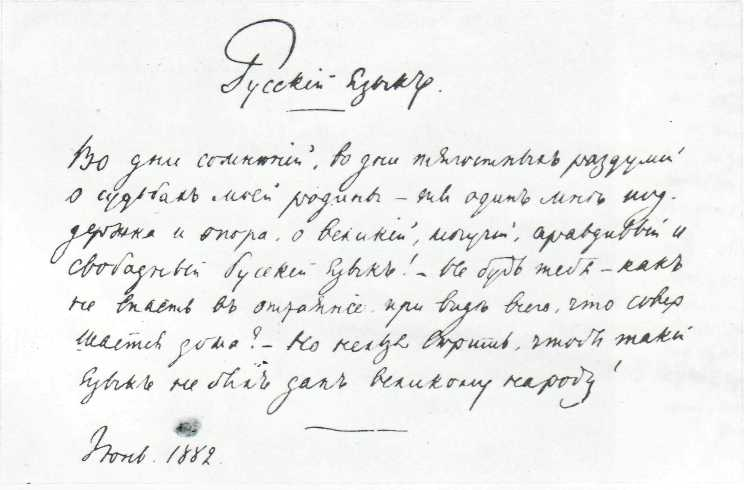 Русскій Языкъ.
Во дни сомнѣній, во дни тягостныхъ раздумій
о судьбахъ моей родины – ты одинъ мнѣ под-
держка и опора, о великій, могучій, правдивый и
свободный Русскій Языкъ! – Не будь тебя – какъ
не впасть въ отчаяніе при видѣ всего, что совер
шается дома? – Но нельзя вѣрить, чтобы такой
Языкъ не былъ данъ великому народу!
Іюнь. 1882.